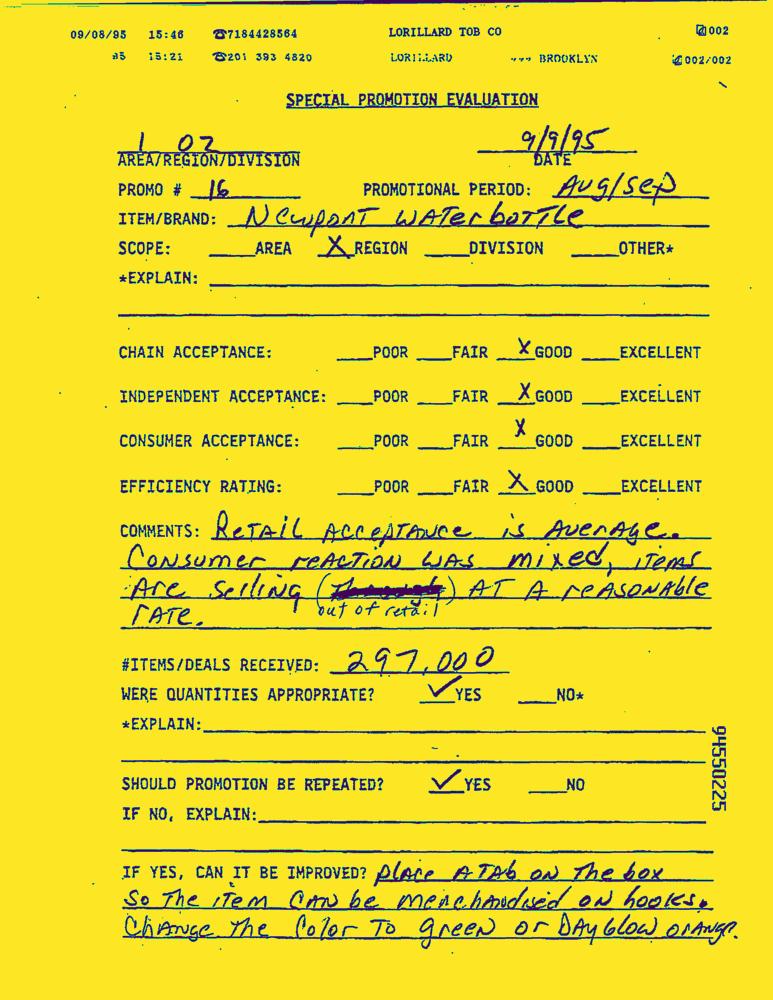 09/08/95 15:46 ☎7184428564 LORILLARD TOB CO 002
95 15:21 ☎201 393 4820 LORILLARD BROOKLYN 002/002
SPECIAL PROMOTION EVALUATION
1 02 9/9/95
AREA/REGION/DIVISION DATE
PROMO # 16 PROMOTIONAL PERIOD: Aug/Sep
ITEM/BRAND: Newport Water bottle
SCOPE: ____AREA X REGION ____DIVISION ____OTHER*
*EXPLAIN:
CHAIN ACCEPTANCE: ___POOR ___FAIR X GOOD ___EXCELLENT
INDEPENDENT ACCEPTANCE: ___POOR ___FAIR X GOOD ___EXCELLENT
CONSUMER ACCEPTANCE: ___POOR ___FAIR X GOOD ___EXCELLENT
EFFICIENCY RATING: ___POOR ___FAIR X GOOD ___EXCELLENT
COMMENTS: Retail Acceptance is Average.
Consumer reaction was mixed, items
Are selling ( ) AT A reasonable
rate. out of retail
#ITEMS/DEALS RECEIVED: 297,000
WERE QUANTITIES APPROPRIATE? ✓YES ___NO*
*EXPLAIN:
SHOULD PROMOTION BE REPEATED? ✓YES ___NO
IF NO, EXPLAIN:
IF YES, CAN IT BE IMPROVED? Place A TAb on The box
So The item CAN be merchandised on hooks.
Change The Color To green or Dayglow orange.
94550225